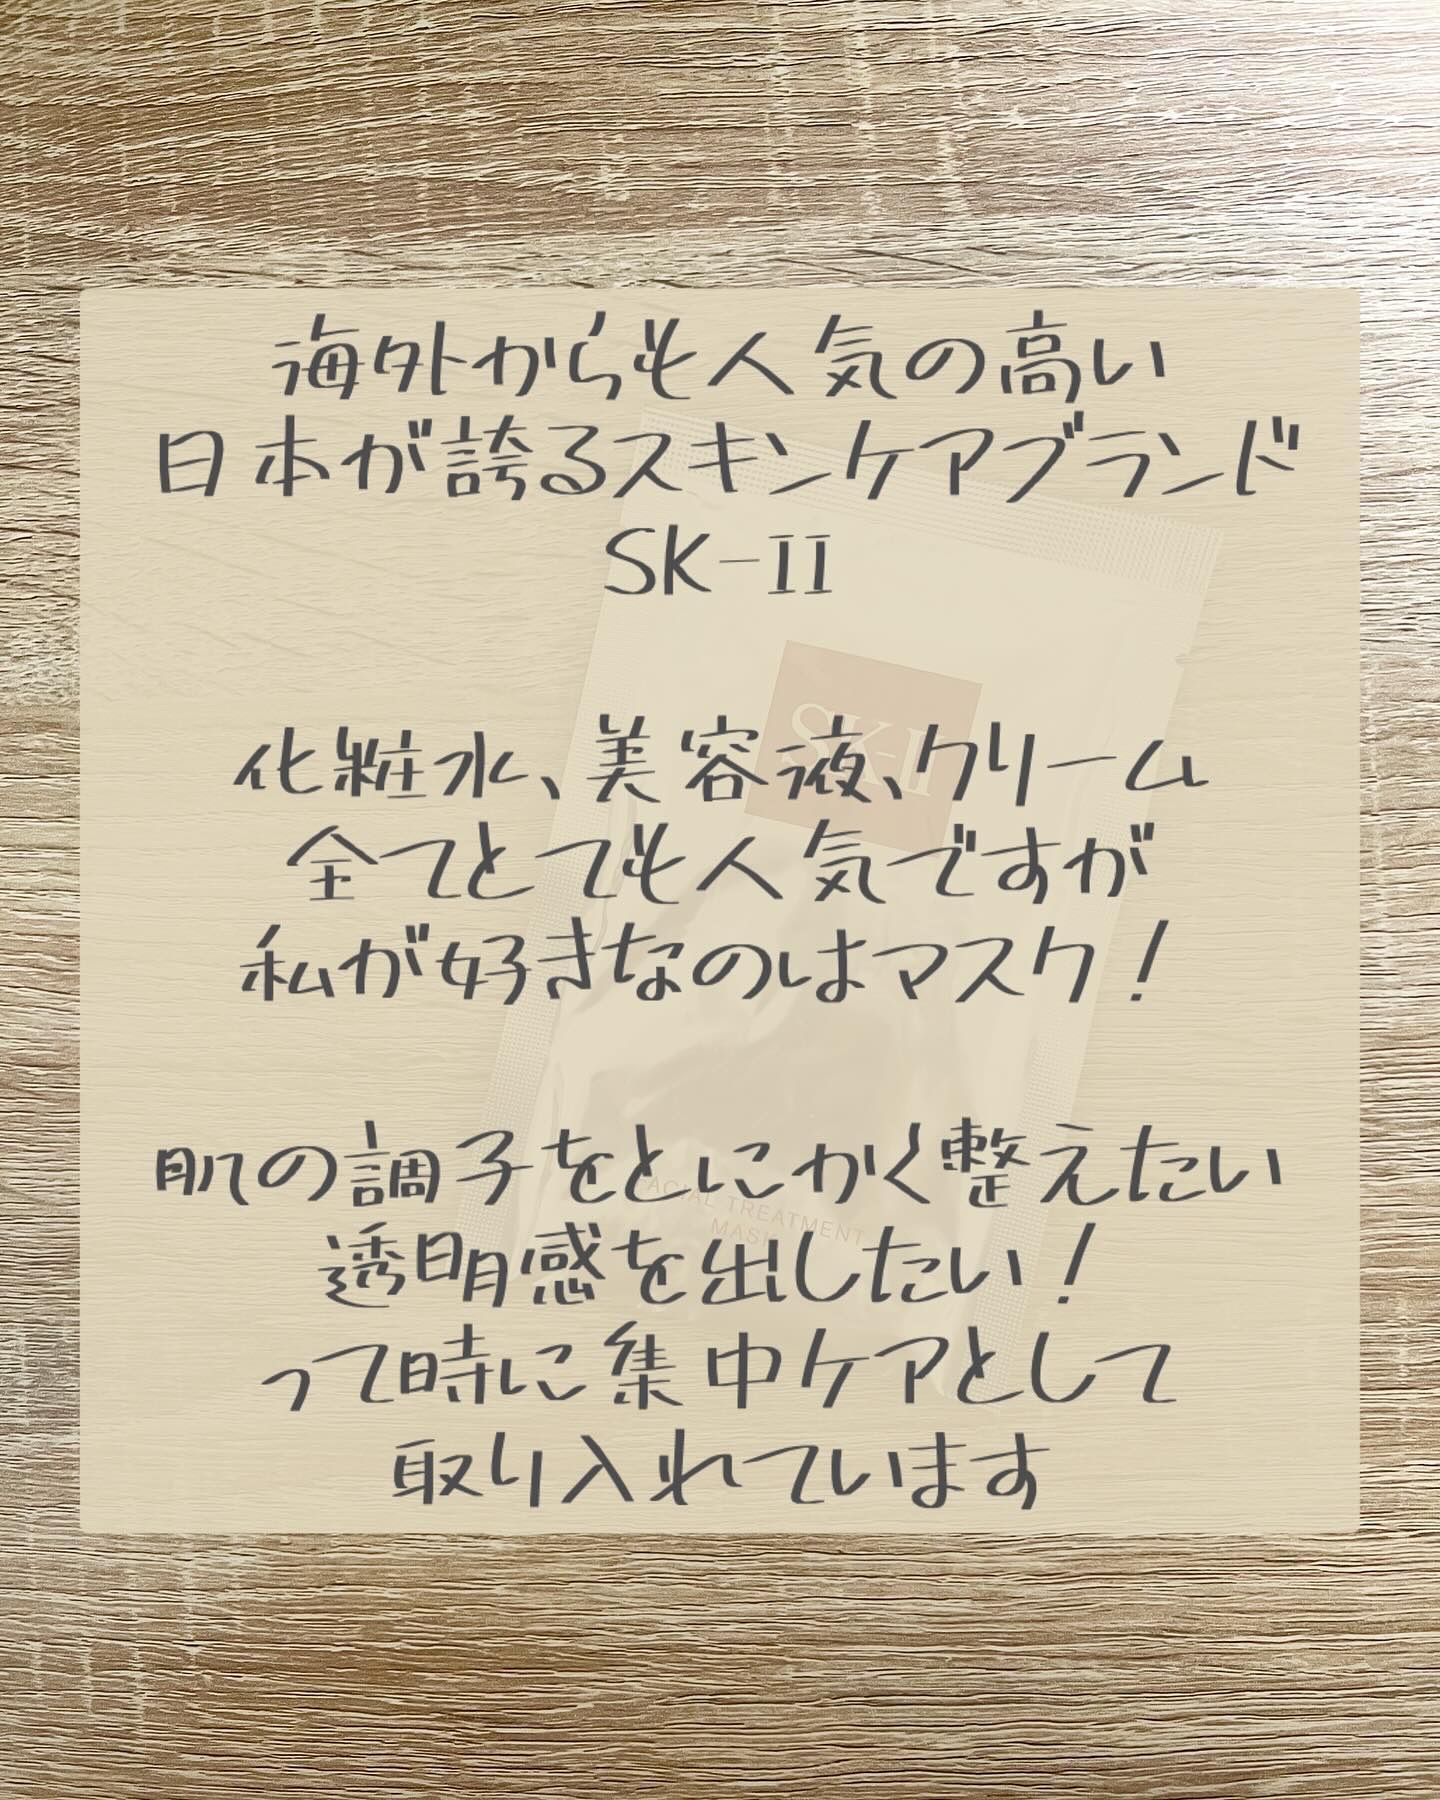 海外からも人気の高い
日本が誇るスキンケアブランド
SK-II
化粧水、美容液、クリーム
全てとても人気ですが
私が好きなのはマスク!
肌の調子をとにかく整えたい
透明感を出したい!
って時に集中ケアとして
取り入れています
SK-II
FACIAL TREATMENT
MASK